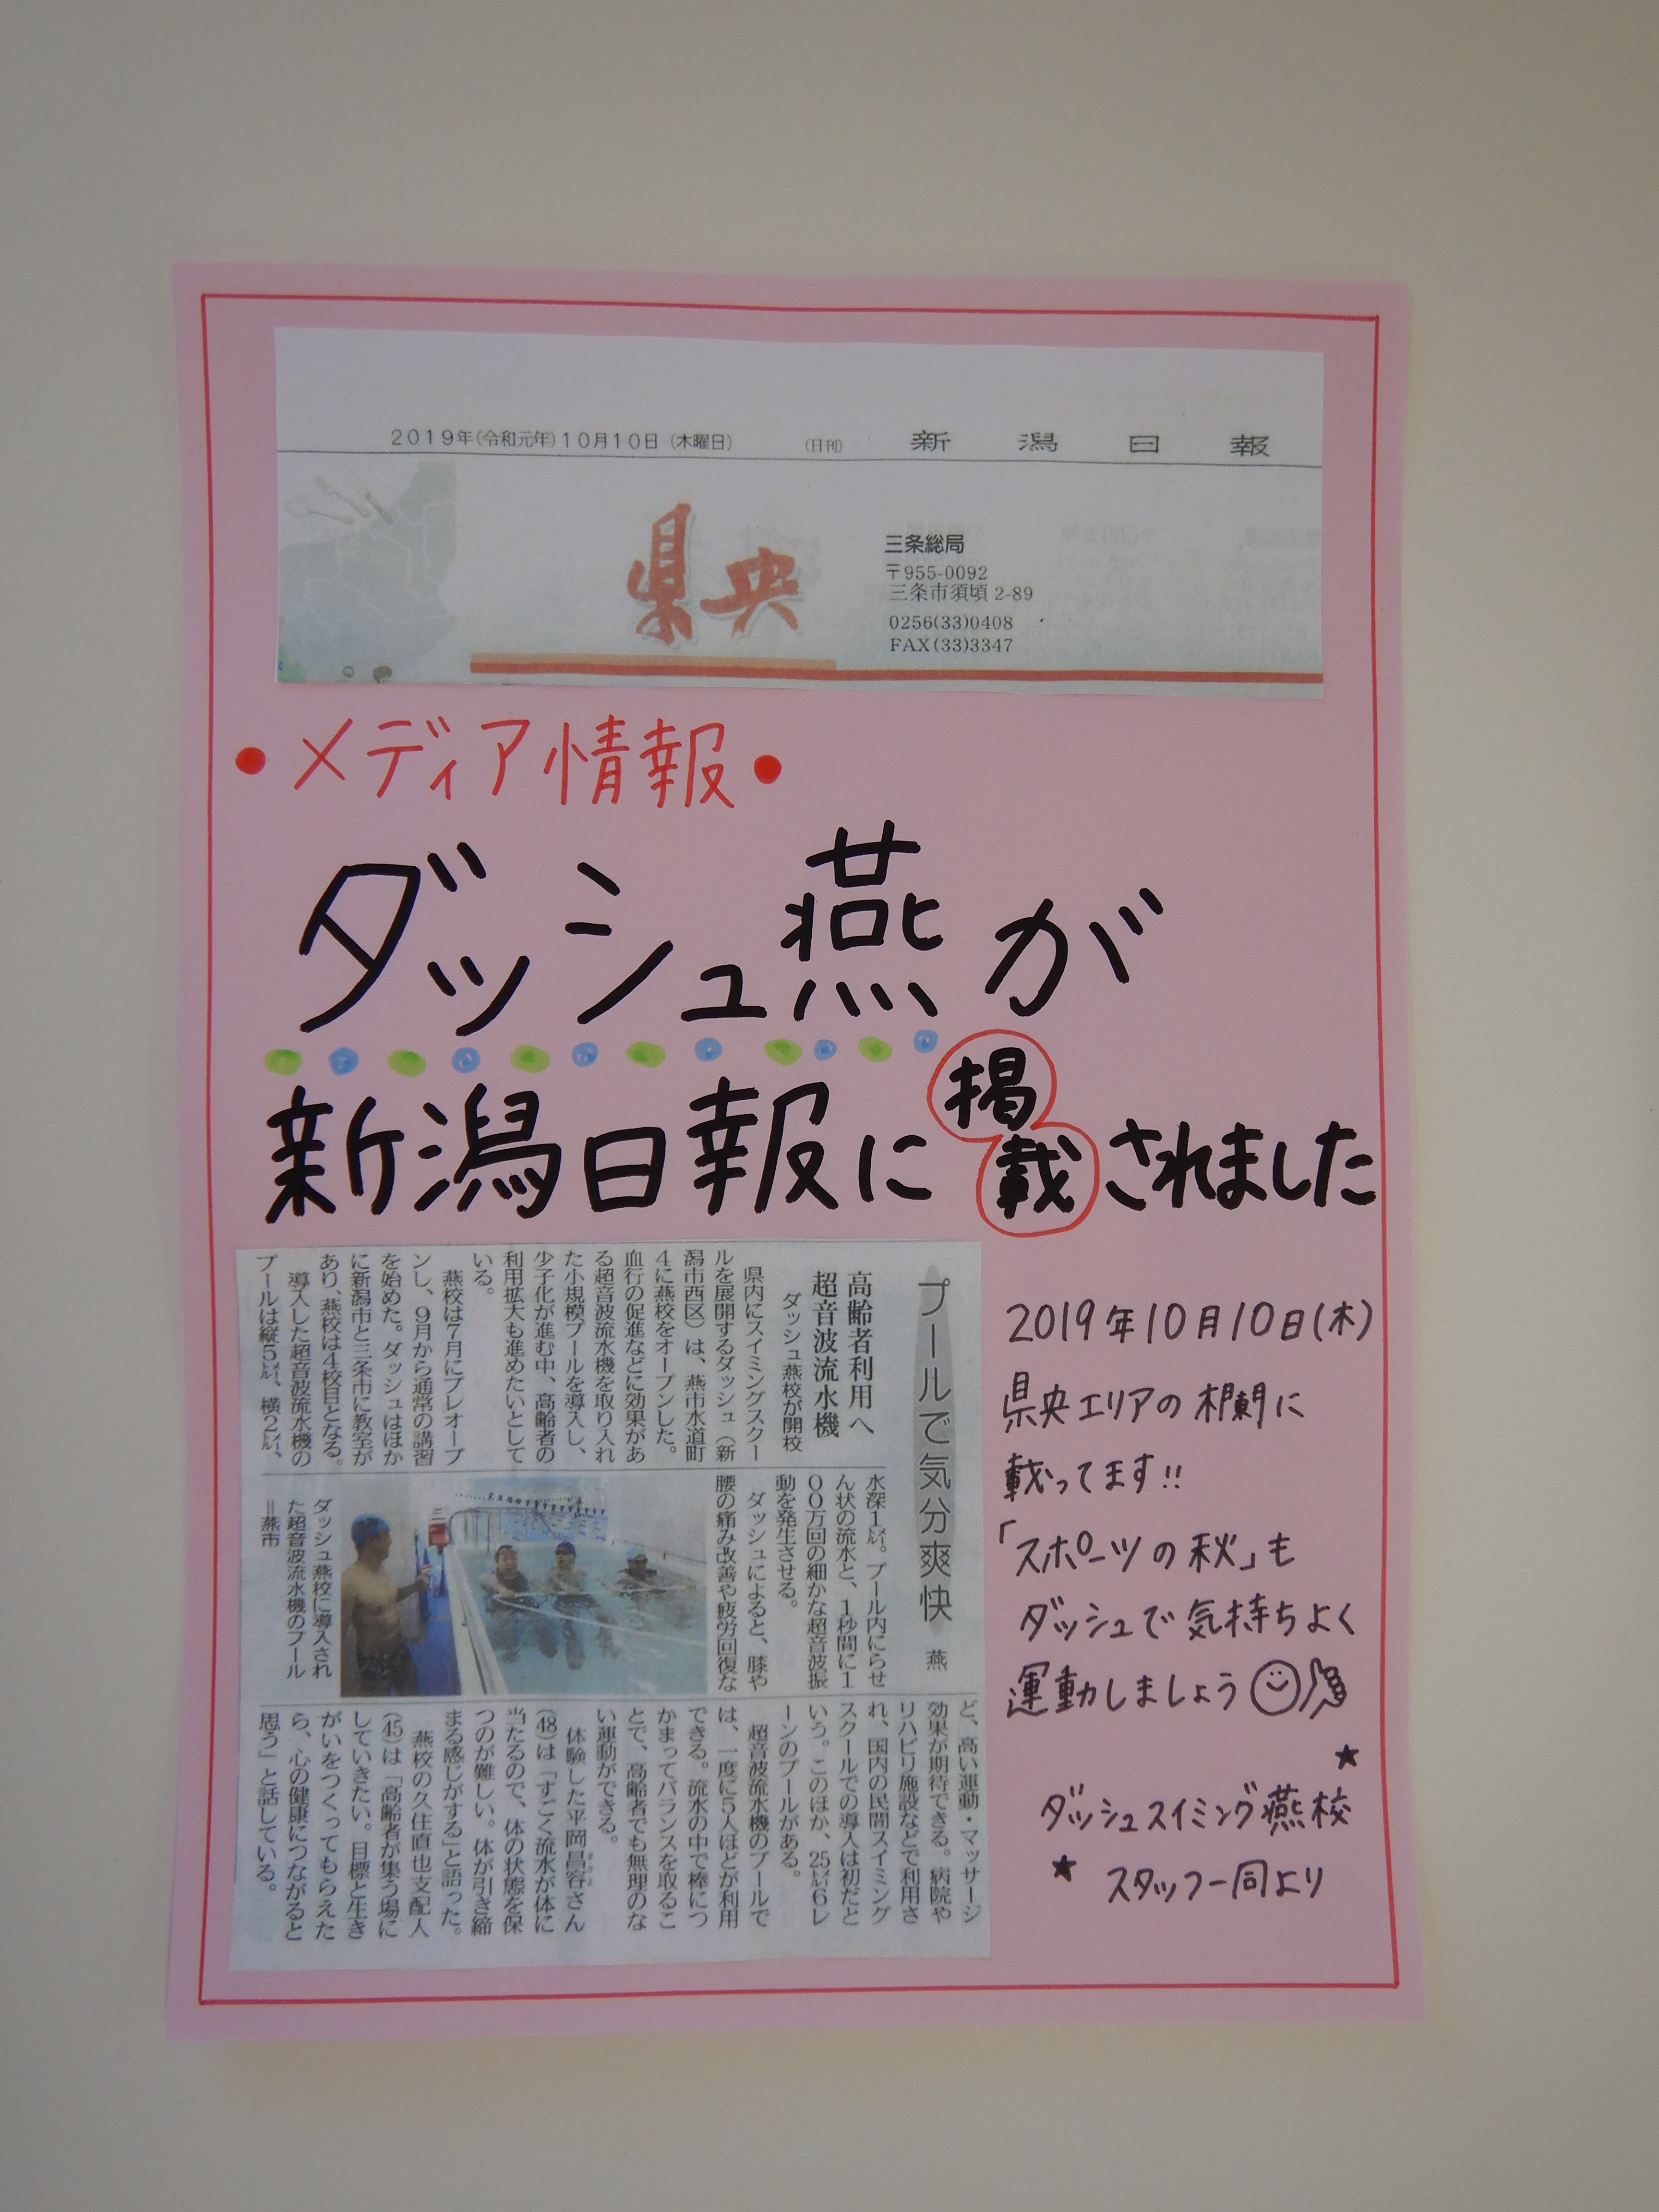 2019年(令和元年)10月10日(木曜日) (日刊) 新潟日報
県央
三条総局
〒955-0092
三条市須頃2-89
0256(33)0408
FAX(33)3347
・メディア情報・
ダッシュ燕が
新潟日報に掲載されました
プールで気分爽快 燕
高齢者利用へ
超音波流水機
ダッシュ燕校が開校
県内にスイミングスクー
ルを展開するダッシュ(新
潟市西区)は、燕市水道町
4に燕校をオープンした。
血行の促進などに効果があ
る超音波流水機を取り入れ
た小規模プールを導入し、
少子化が進む中、高齢者の
利用拡大も進めたいとして
いる。
燕校は7月にプレオープ
ンし、9月から通常の講習
を始めた。ダッシュはほか
に新潟市と三条市に教室が
あり、燕校は4校目となる。
導入した超音波流水機の
プールは縦5㍍、横2㍍、
水深1㍍。プール内にらせ
ん状の流水と、1秒間に1
00万回の細かな超音波振
動を発生させる。
ダッシュによると、膝や
腰の痛み改善や疲労回復な
ダッシュ燕校に導入され
た超音波流水機のプール
=燕市
ど、高い運動・マッサージ
効果が期待できる。病院や
リハビリ施設などで利用さ
れ、国内の民間スイミング
スクールでの導入は初だと
いう。このほか、25㍍6レ
ーンのプールがある。
超音波流水機のプールで
は、一度に5人ほどが利用
できる。流水の中で棒につ
かまってバランスを取るこ
とで、高齢者でも無理のな
い運動ができる。
体験した平岡昌容さん
(48)は「すごく流水が体に
当たるので、体の状態を保
つのが難しい。体が引き締
まる感じがする」と語った。
燕校の久住直也支配人
(45)は「高齢者が集う場に
していきたい。目標と生き
がいをつくってもらえた
ら、心の健康につながると
思う」と話している。
2019年10月10日(木)
県央エリアの朝に
載ってます!!
「スポーツの秋」も
ダッシュで気持ちよく
運動しましょう
ダッシュスイミング燕校
スタッフ一同より